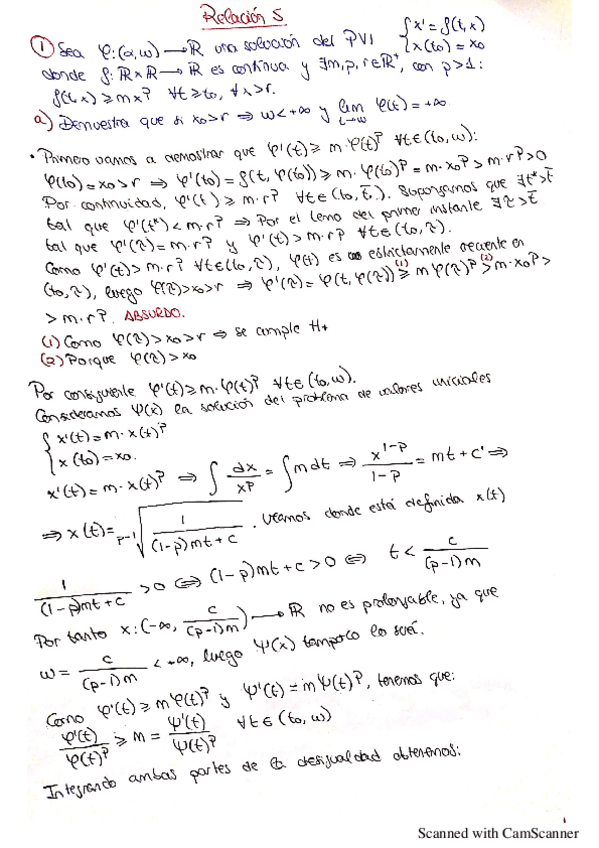 Relación 5
① Sea φ: (α, ω) → ℝ una solución del PVI { x' = f(t,x)
{ x(t₀) = x₀
donde f: ℝ×ℝ → ℝ es continua y ∃m,p,r∈ℝ⁺, con p>1:
f(t,x) ≥ mxᵖ ∀t≥t₀, ∀x>r.
a) Demuestra que si x₀>r ⇒ ω<+∞ y lim φ(t) = +∞
t→ω
• Primero vamos a demostrar que φ'(t) ≥ m·φ(t)ᵖ ∀t∈(t₀, ω):
φ(t₀)=x₀>r ⇒ φ'(t₀) = f(t, φ(t₀)) ≥ m·φ(t₀)ᵖ = m·x₀ᵖ > m·rᵖ > 0
Por continuidad, φ'(t) ≥ m·rᵖ ∀t∈(t₀, t̄). Supongamos que ∃t*>t̄
tal que φ'(t*) < m·rᵖ ⇒ Por el lema del primer instante ∃τ>t̄
tal que φ'(τ) = m·rᵖ y φ'(t) > m·rᵖ ∀t∈(t₀, τ).
Como φ'(t) > m·rᵖ ∀t∈(t₀,τ), φ(t) es estrictamente creciente en
(t₀,τ), luego φ(τ)>x₀>r ⇒ φ'(τ) = φ(t, φ(τ)) ≥⁽¹⁾ mφ(τ)ᵖ >⁽²⁾ m·x₀ᵖ >
> m·rᵖ. ABSURDO.
(1) Como φ(τ)>x₀>r ⇒ se cumple H₁
(2) Porque φ(τ)>x₀
Por consiguiente φ'(t) ≥ m·φ(t)ᵖ ∀t∈(t₀,ω).
Consideramos ψ(x) la solución del problema de valores iniciales
{ x'(t) = m·x(t)ᵖ
{ x(t₀) = x₀.
x'(t) = m·x(t)ᵖ ⇒ ∫ dx/xᵖ = ∫ m dt ⇒ x¹⁻ᵖ/(1-p) = mt + c' ⇒
⇒ x(t) = ᵖ⁻¹√(1/((1-p)mt+c)). Veamos donde está definida x(t)
1/((1-p)mt+c) > 0 ⇔ (1-p)mt+c > 0 ⇔ t < c/((p-1)m)
Por tanto x: (-∞, c/((p-1)m)) → ℝ no es prolongable, ya que
ω = c/((p-1)m) < +∞, luego ψ(x) tampoco lo será.
Como φ'(t) ≥ mφ(t)ᵖ y ψ'(t) = mψ(t)ᵖ, tenemos que:
φ'(t)/φ(t)ᵖ ≥ m = ψ'(t)/ψ(t)ᵖ ∀t∈(t₀, ω)
Integrando ambas partes de la desigualdad obtenemos:
Scanned with CamScanner